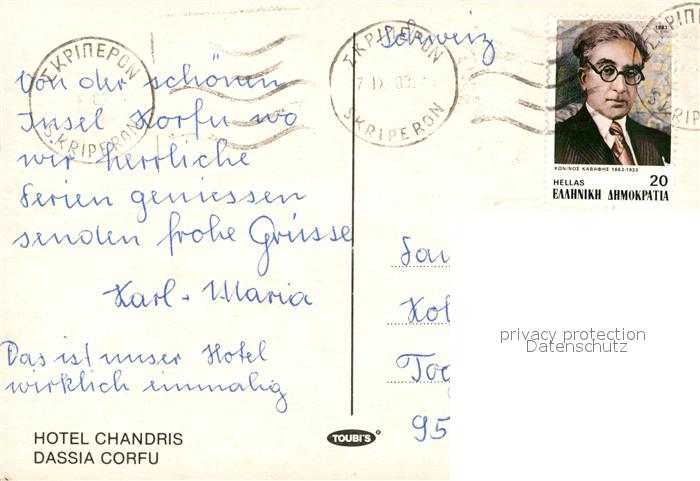 Schweiz
ΣΚΡΙΠΕΡΟΝ
SKRIPERON
ΣΚΡΙΠΕΡΟΝ
7 IX 83
SKRIPERON
1983
ΚΩΝ/ΝΟΣ ΚΑΒΑΦΗΣ 1863-1933
HELLAS 20
ΕΛΛΗΝΙΚΗ ΔΗΜΟΚΡΑΤΙΑ
Von der schönen
Insel Korfu wo
wir herrliche
Ferien geniessen
senden frohe Grüsse
Karl + Maria
Das ist unser Hotel
wirklich einmalig
HOTEL CHANDRIS
DASSIA CORFU
TOUBI'S
95
privacy protection
Datenschutz